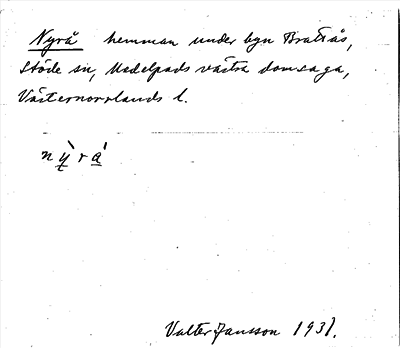 Nyrå hemman under byn Brattås,
Stöde sn, Medelpads västra domsaga,
Västernorrlands l.
nỳrá
Valter Jansson 1931.